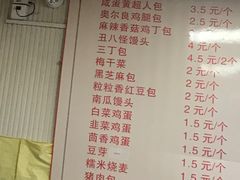 咸蛋黄超人包 3.5 元/个
奥尔良鸡腿包 2.5 元/个
麻辣香菇鸡丁包 2 元/个
丑八怪馒头 4 元/个
三丁包 4.5 元/2个
梅干菜 2 元/个
黑芝麻包 2 元/个
粒粒香红豆包 2 元/个
南瓜馒头 2 元/个
白菜鸡蛋 1.5 元/个
韭菜鸡蛋 1.5 元/个
茴香鸡蛋 1.5 元/个
豆芽 1.5 元/个
糯米烧麦
猪肉包